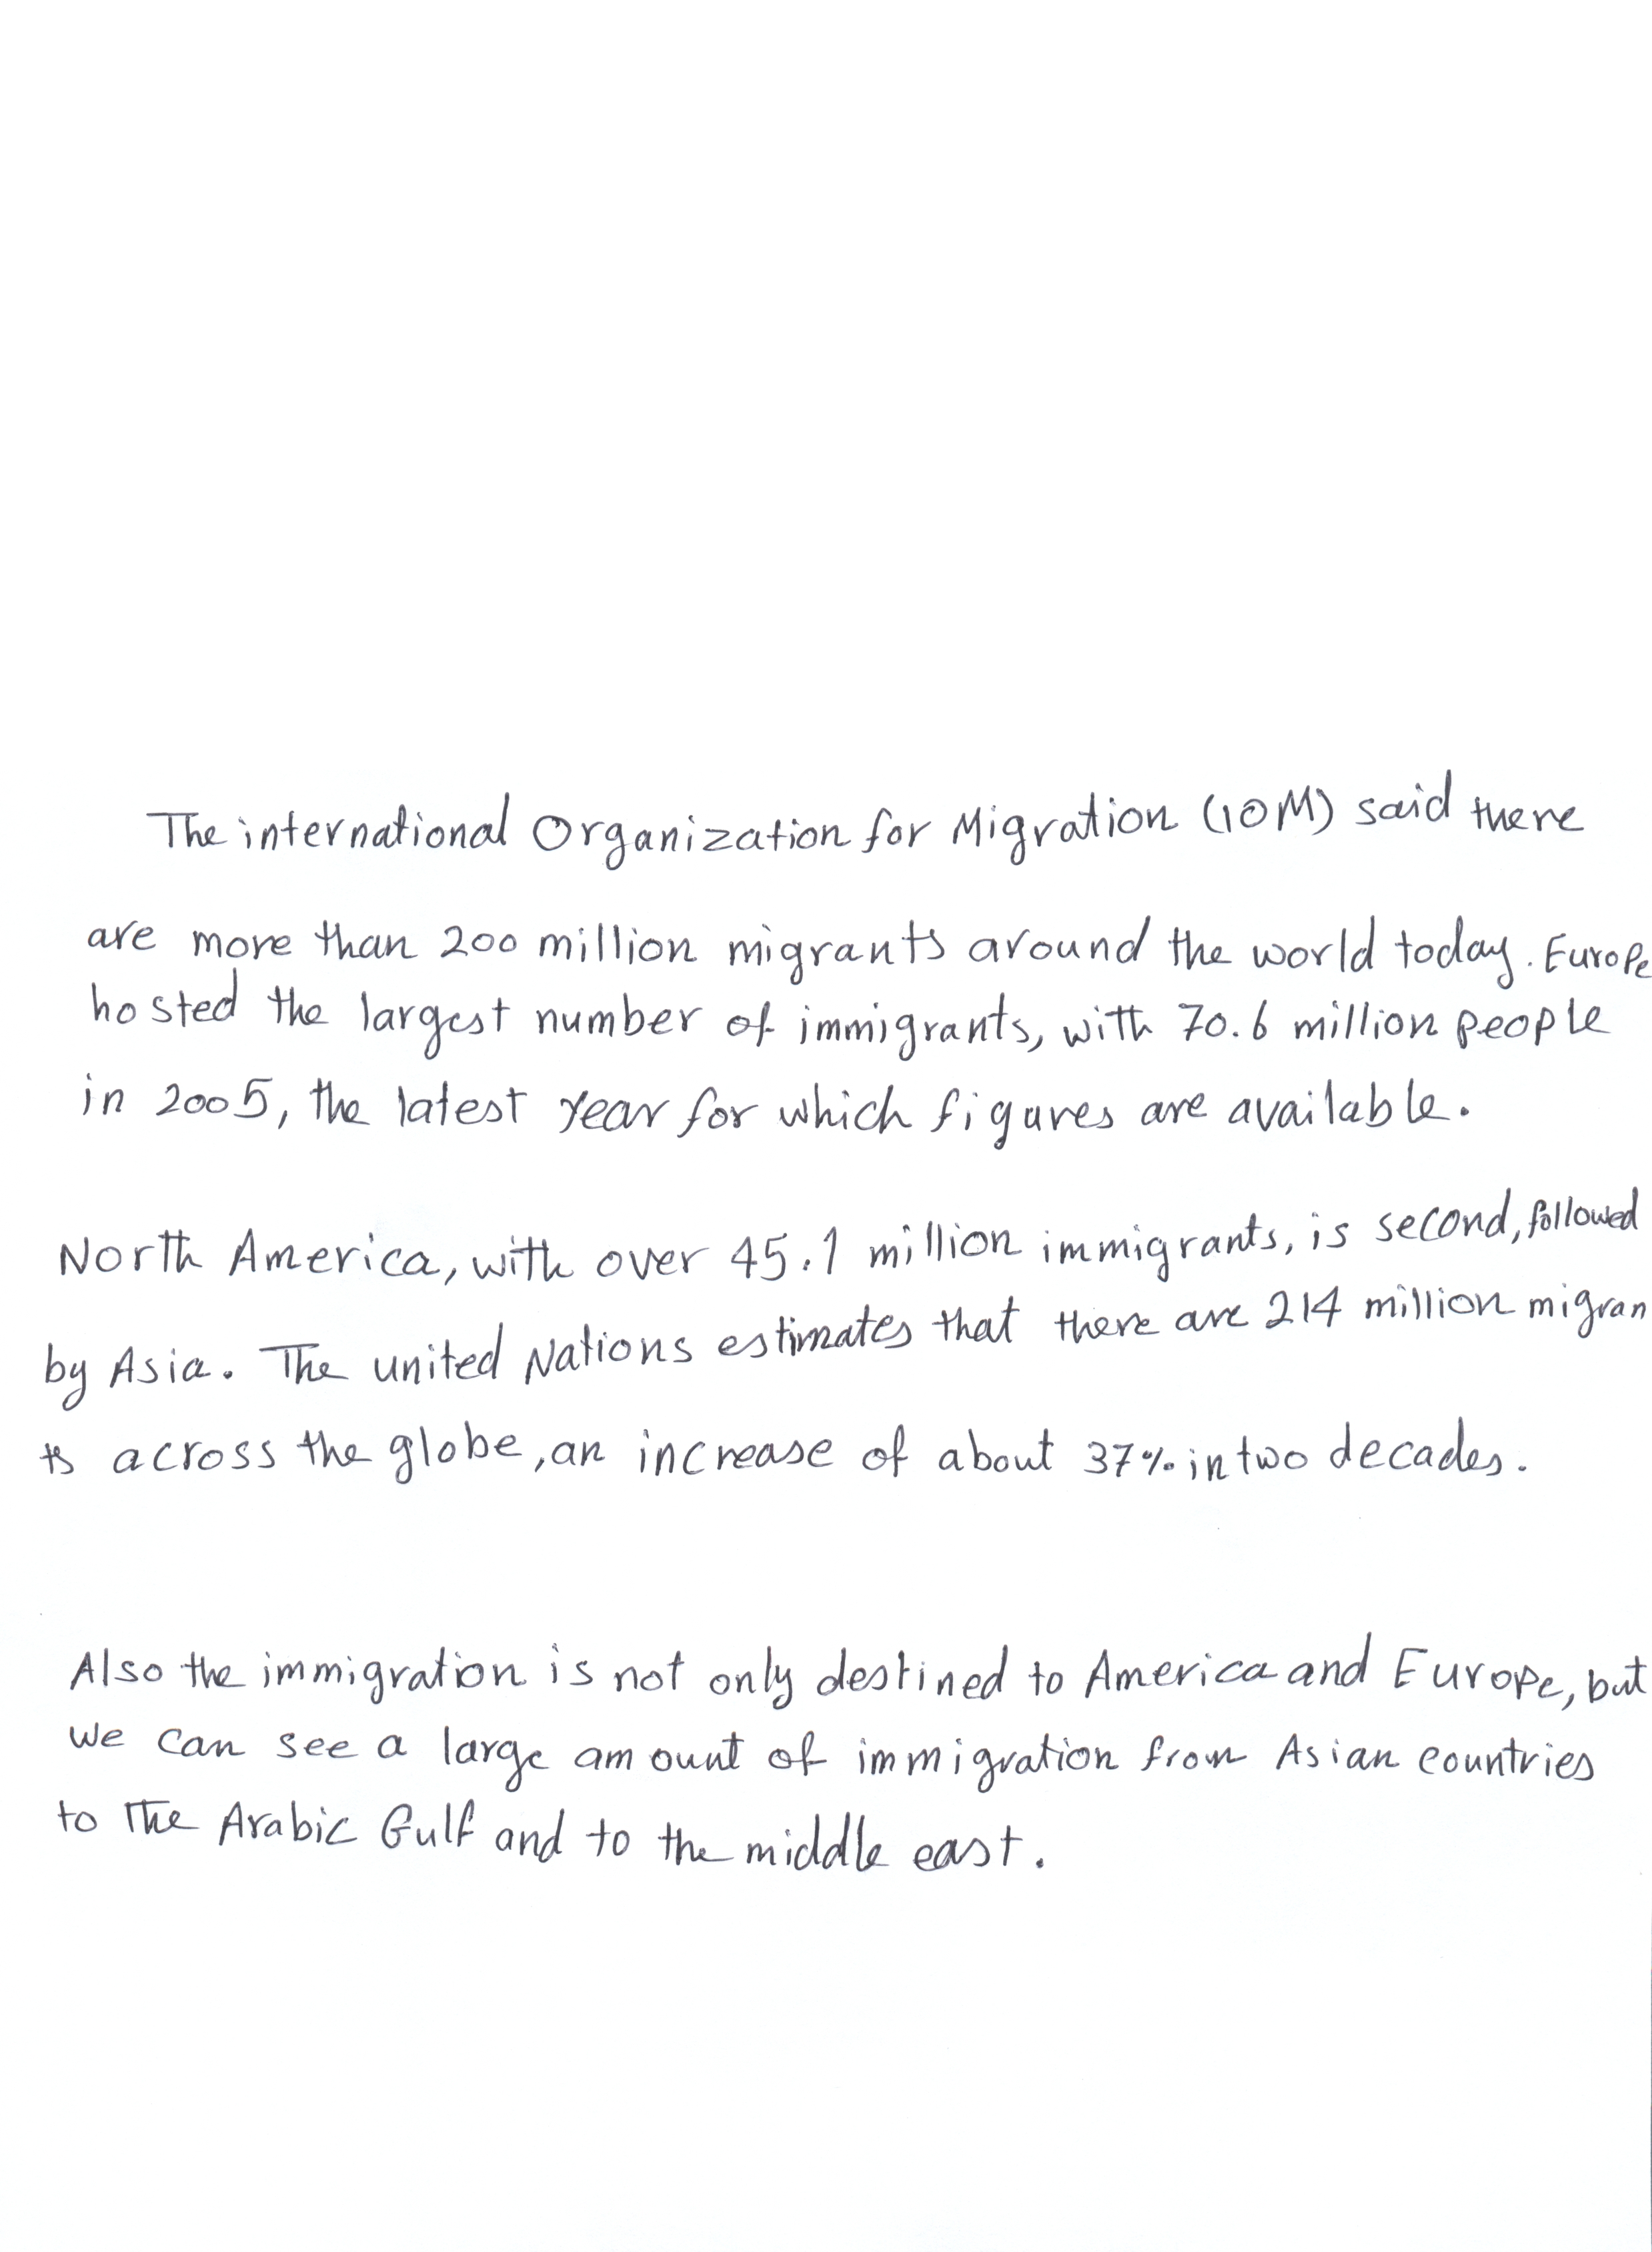 The international Organization for Migration (IOM) said there
are more than 200 million migrants around the world today. Europe
hosted the largest number of immigrants, with 70.6 million people
in 2005, the latest year for which figures are available.
North America, with over 45.1 million immigrants, is second, followed
by Asia. The united Nations estimates that there are 214 million migran
ts across the globe, an increase of about 37% in two decades.
Also the immigration is not only destined to America and Europe, but
we can see a large amount of immigration from Asian countries
to The Arabic Gulf and to the middle east.